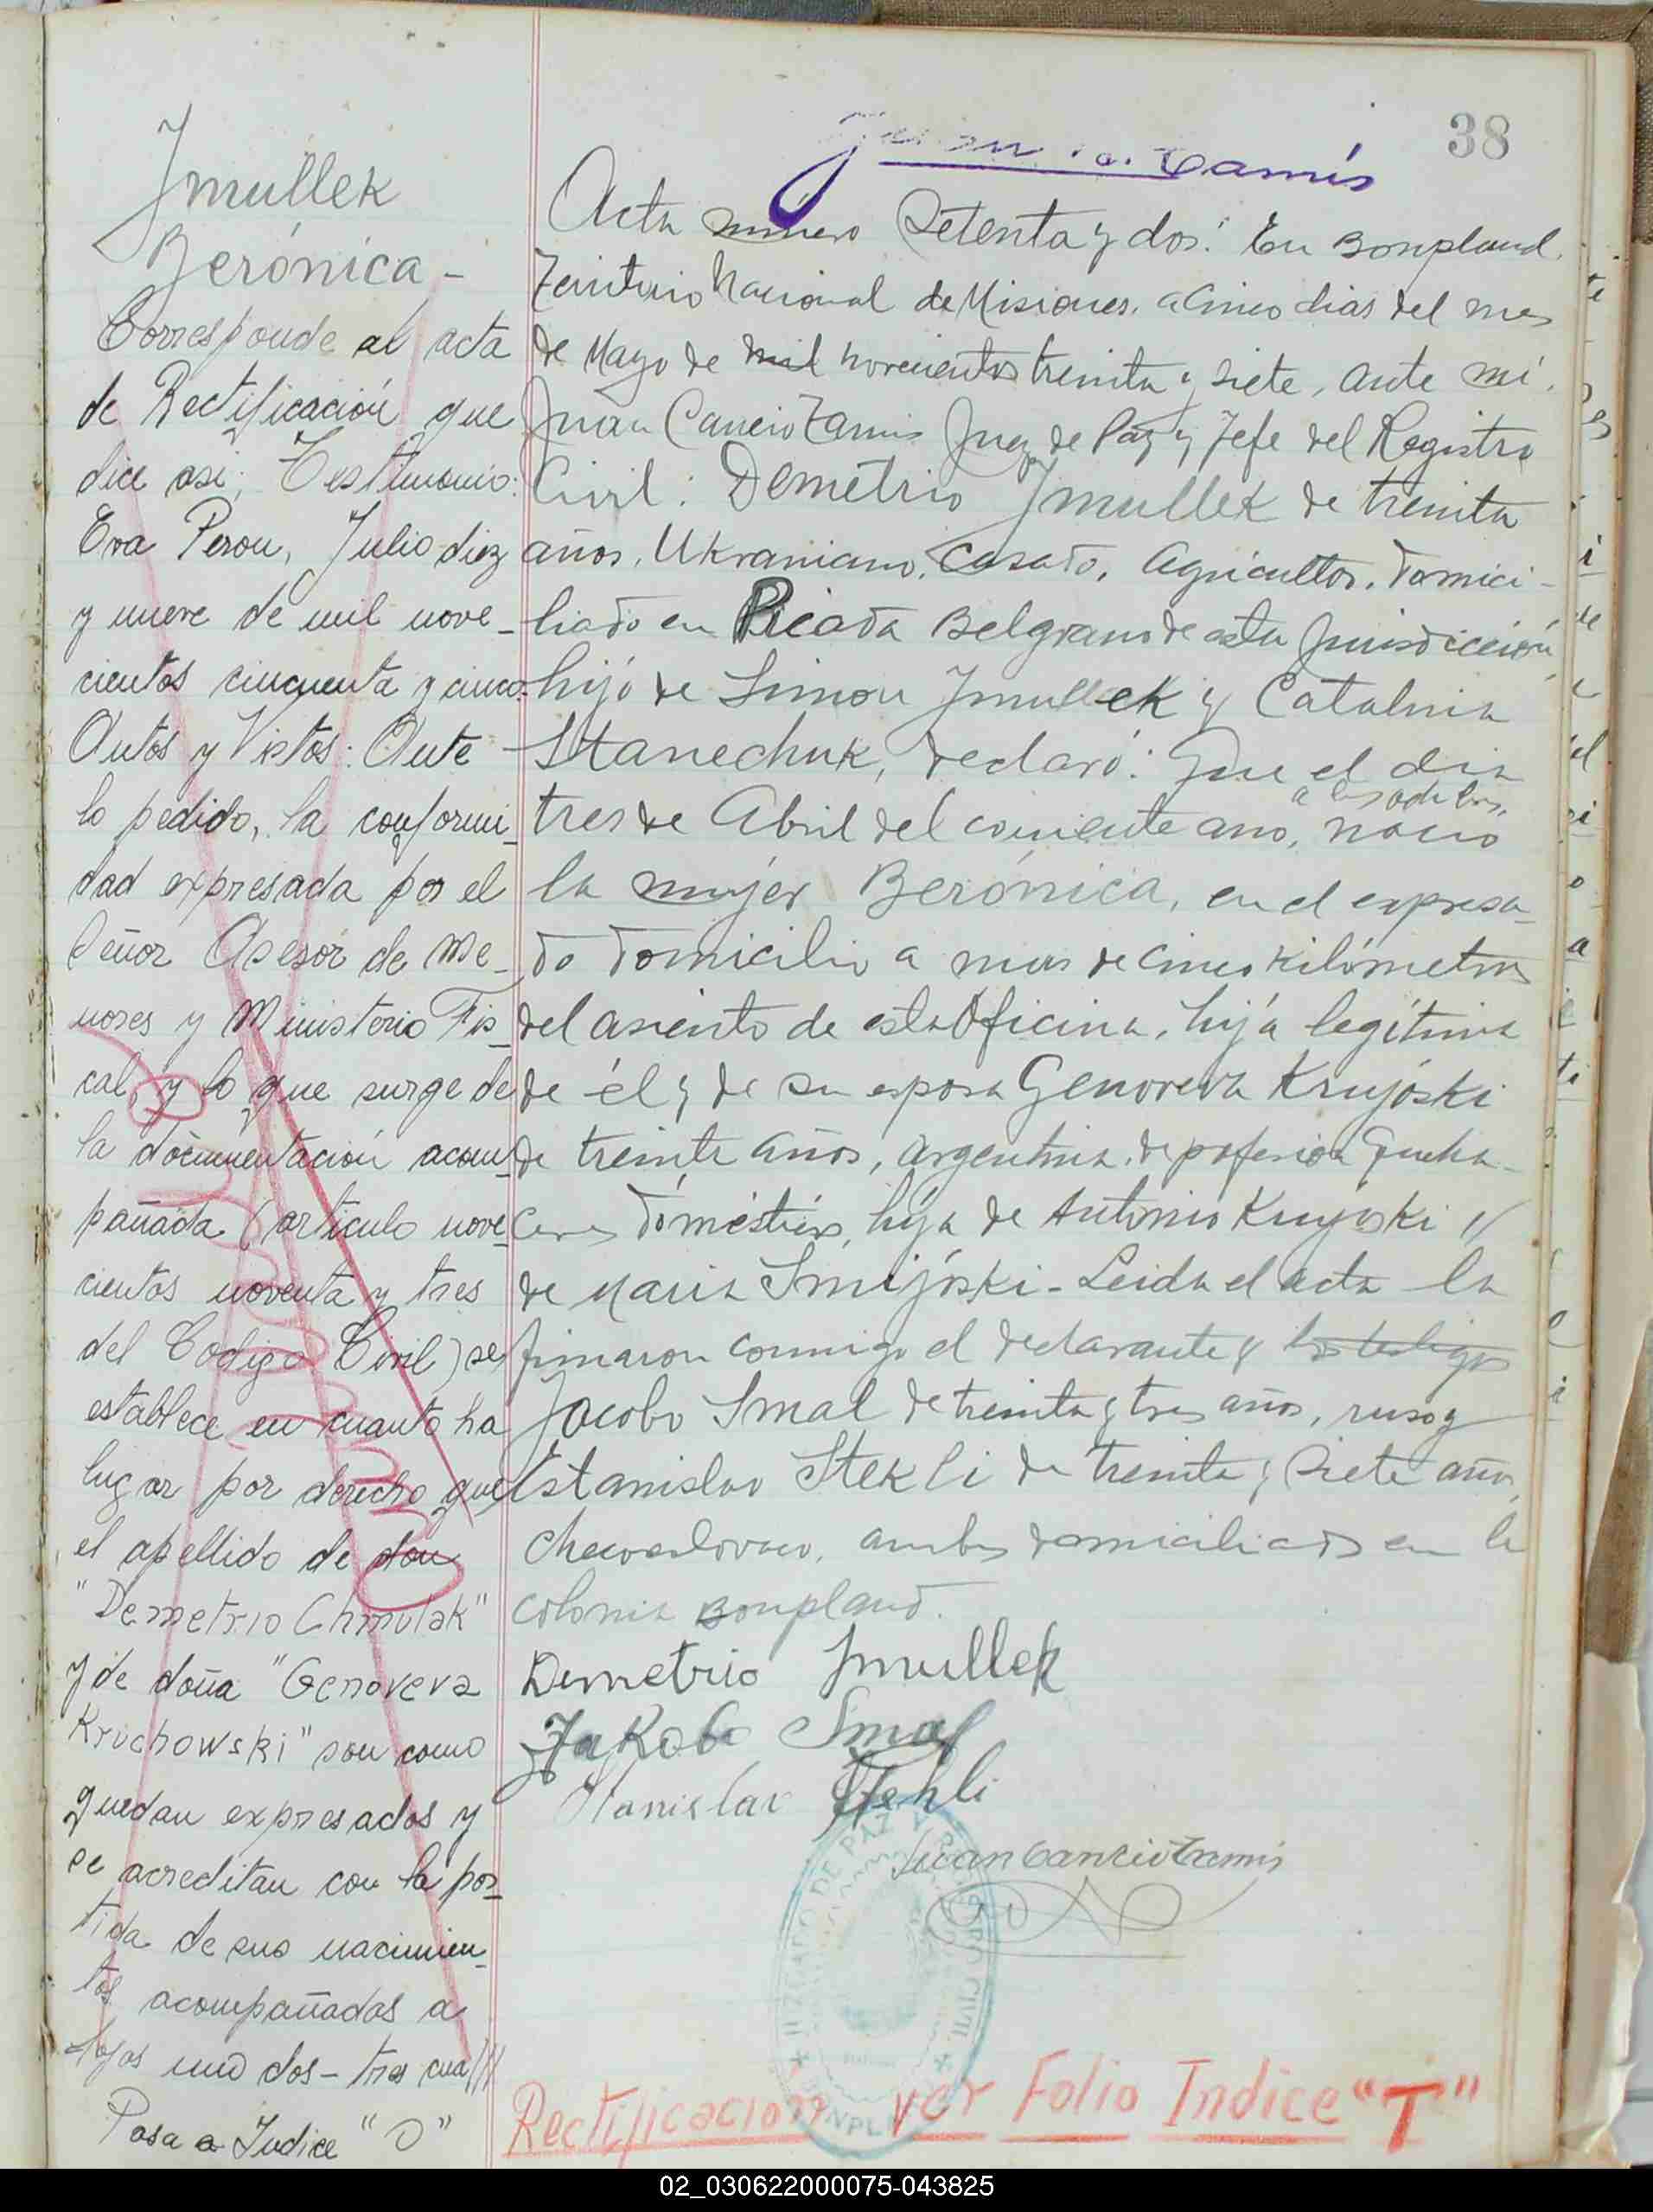 38
Jmullek
Berónica -
Corresponde al acta
de Rectificación que
dice asi; Testimonio:
Eva Peron, Julio diez
y nueve de mil nove-
cientos cincuenta y cinco.
Autos y Vistos: Aute
lo pedido, la conformi
dad expresada por el
Señor Asesor de Me-
nores y Ministerio Fis-
cal, y lo que surge de
la documentación acom-
pañada (articulo nove-
cientos noventa y tres
del Codigo Civil) se
establece en cuanto ha
lugar por derecho que
el apellido de don
"Demetrio Chmulak"
y de doña "Genoveva
Kruchowski" son como
quedan expresados y
se acreditan con la par-
tida de sus nacimien-
tos acompañadas a
fojas uno dos - tres cua///
Pasa a Indice "O"
Tamis
Acta número Setenta y dos: En Bonpland
Territorio Nacional de Misiones, a cinco dias del mes
de Mayo de mil novecientos treinta y siete, ante mi,
Juan Cancio Tamis Juez de Paz y Jefe del Registro
Civil: Demetrio Jmullek de treinta
años, Ukraniano, casado, agricultor, domici-
liado en Picada Belgrano de esta Jurisdicción,
hijo de Simon Jmullek y Catalina
Stanechuk, declaró: Que el dia
tres de Abril del corriente ano, nació
la mujer Berónica, en el expresa-
do domicilio a mas de cinco kilómetros
del asiento de esta Oficina, hija legítima
de él y de su esposa Genoveva Krujóski
de treinta años, argentina, de profesion Queha-
ceres domésticos, hija de Antonio Krujóski y
de Maria Smijóski - Leida el acta la
firmaron conmigo el declarante y los testigos
Jacobo Smal de treinta y tres años, ruso y
Estanislao Stekli de treinta y siete años,
checoeslovaco, ambos domiciliados en la
colonia Bonpland.
Demetrio Jmullek
Jakobo Smal
Stanislav Stehli
Juan Cancio Tamis
JUZGADO DE PAZ Y REGISTRO CIVIL
Rectificacion ver Folio Indice "T"
02_030622000075-043825